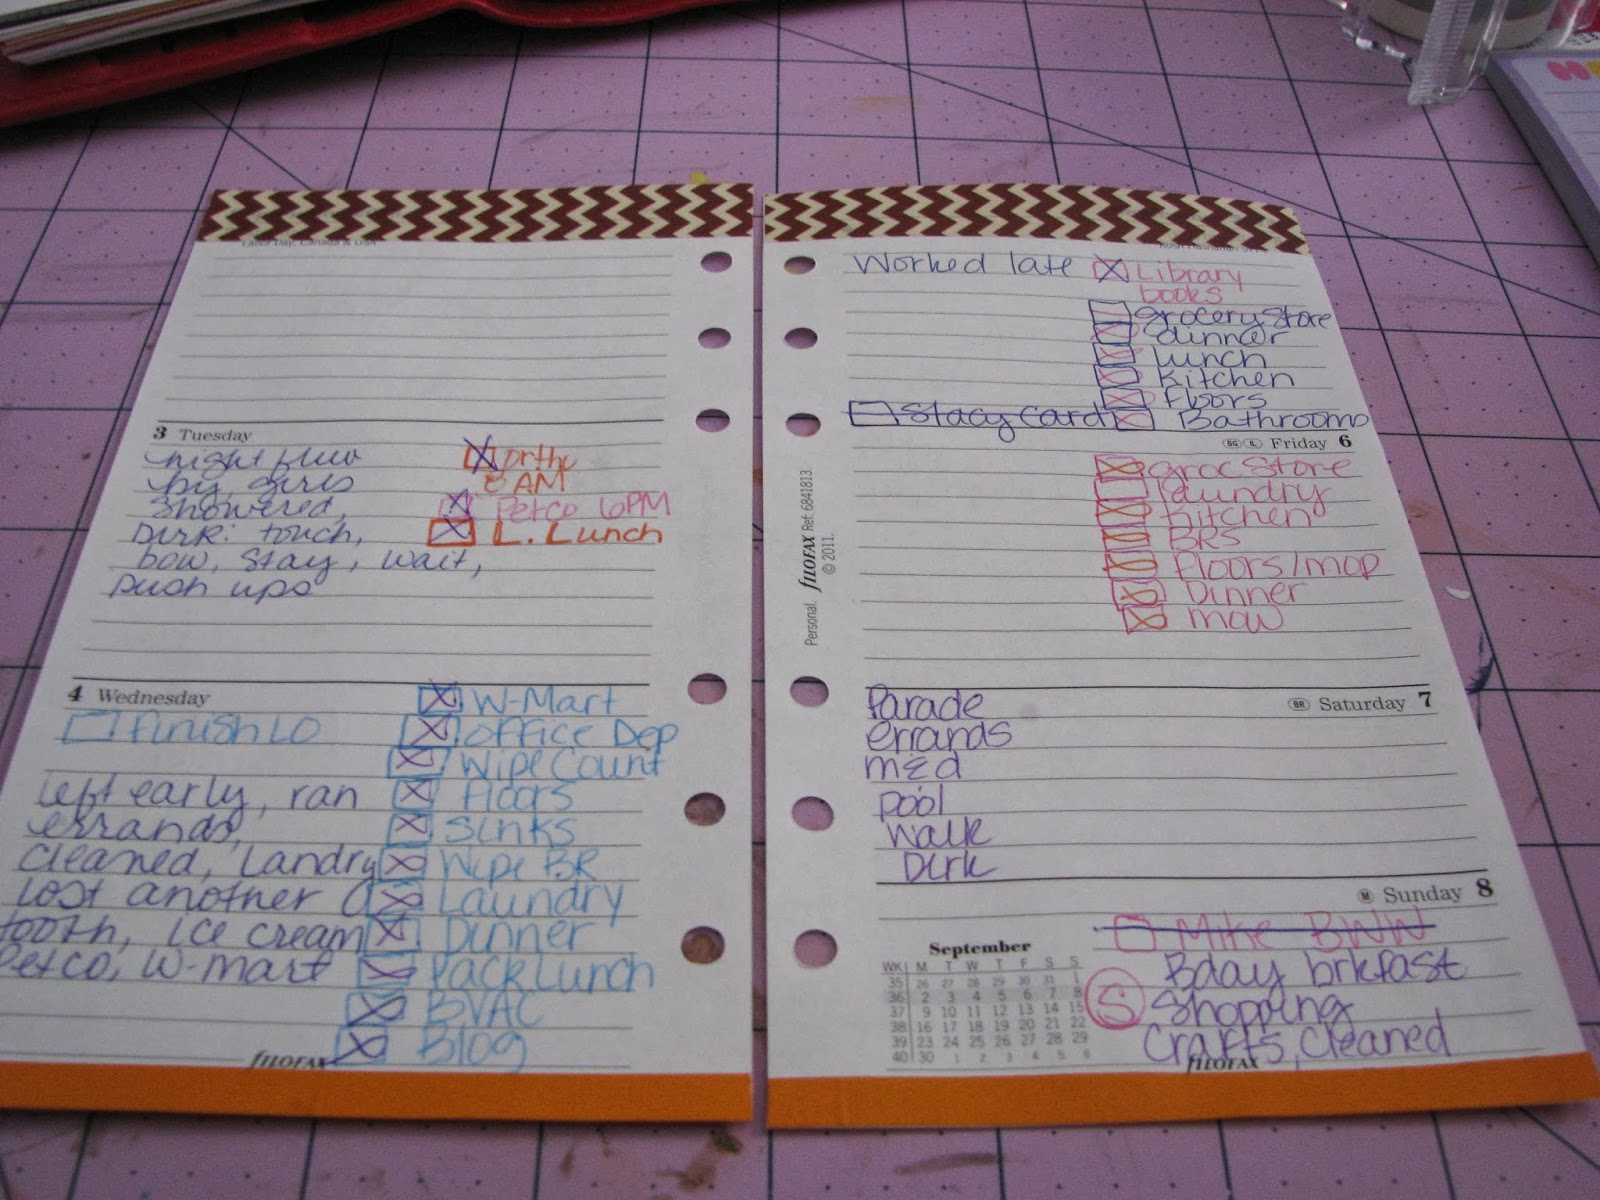 Labor Day, Canada & USA
3 Tuesday
night
big girls
showered,
Dirk: touch,
bow, stay, wait,
push ups
ortho
8 AM
Petco 6PM
L. Lunch
4 Wednesday
Finish LO
left early, ran
errands,
cleaned, Landry
lost another
tooth, ice cream
Petco, W-mart
W-Mart
Office Dep
Wipe Count
Floors
Sinks
Wipe BR
Laundry
Dinner
Pack Lunch
BVAC
Blog
fILOFAX
Worked late
Library
books
grocery store
dinner
Lunch
Kitchen
Floors
Stacy Card
Bathrooms
Personal. fILOFAX Ref. 6841813.
© 2011.
Friday 6
groc Store
laundry
Kitchen
BRS
Floors/mop
Dinner
mow
BR Saturday 7
Parade
errands
m&d
pool
Walk
Dirk
Sunday 8
Mike BWW
Bday brkfast
S Shopping
Crafts, cleaned
September
WK M T W T F S S
35 26 27 28 29 30 31 1
36 2 3 4 5 6 7 8
37 9 10 11 12 13 14 15
38 16 17 18 19 20 21 22
39 23 24 25 26 27 28 29
40 30 1 2 3 4 5 6
fILOFAX